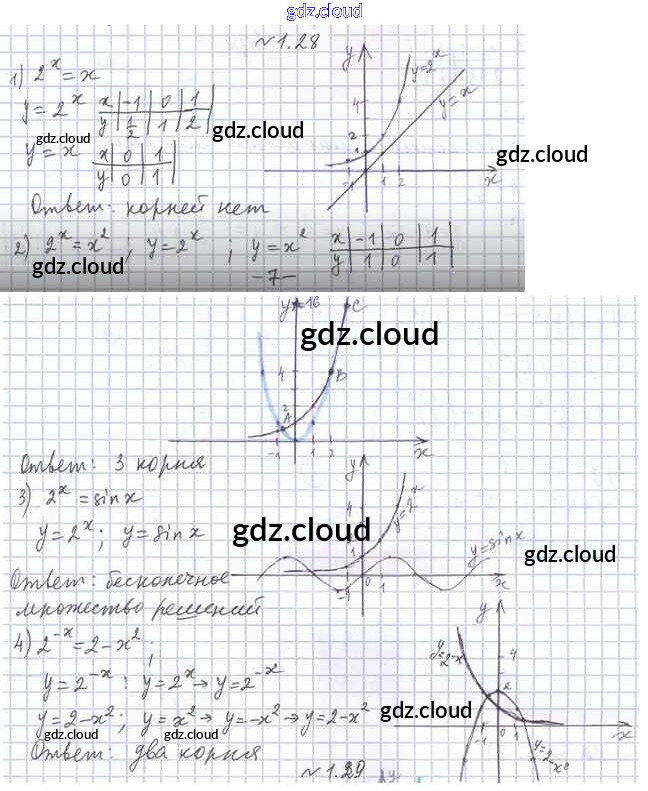 gdz.cloud
№1.28
1) 2^x = x
y = 2^x x | -1 | 0 | 1 |
y | 1/2 | 1 | 2 |
gdz.cloud
y = x x | 0 | 1 |
y | 0 | 1 |
y 4 2 1 -1 1 2 x y=2^x y=x
gdz.cloud
gdz.cloud
Ответ: корней нет
2) 2^x = x^2 ; y = 2^x ; y = x^2 x | -1 | 0 | 1 |
y | 1 | 0 | 1 |
gdz.cloud
-7-
y 16 C
gdz.cloud
4 B
2 A
-1 1 2 x
Ответ: 3 корня
3) 2^x = sin x
y = 2^x ; y = sin x
gdz.cloud
y 4 2 1 -1 0 1 x y=2^x y=sin x
gdz.cloud
Ответ: бесконечное
множество решений
4) 2^-x = 2 - x^2 ;
y = 2^-x : y = 2^x → y = 2^-x
y = 2-x^2 ; y = x^2 → y = -x^2 → y = 2-x^2
gdz.cloud
y y=2^-x 4 2 -1 1 x y=2-x^2
gdz.cloud
gdz.cloud
Ответ: два корня
№1.29